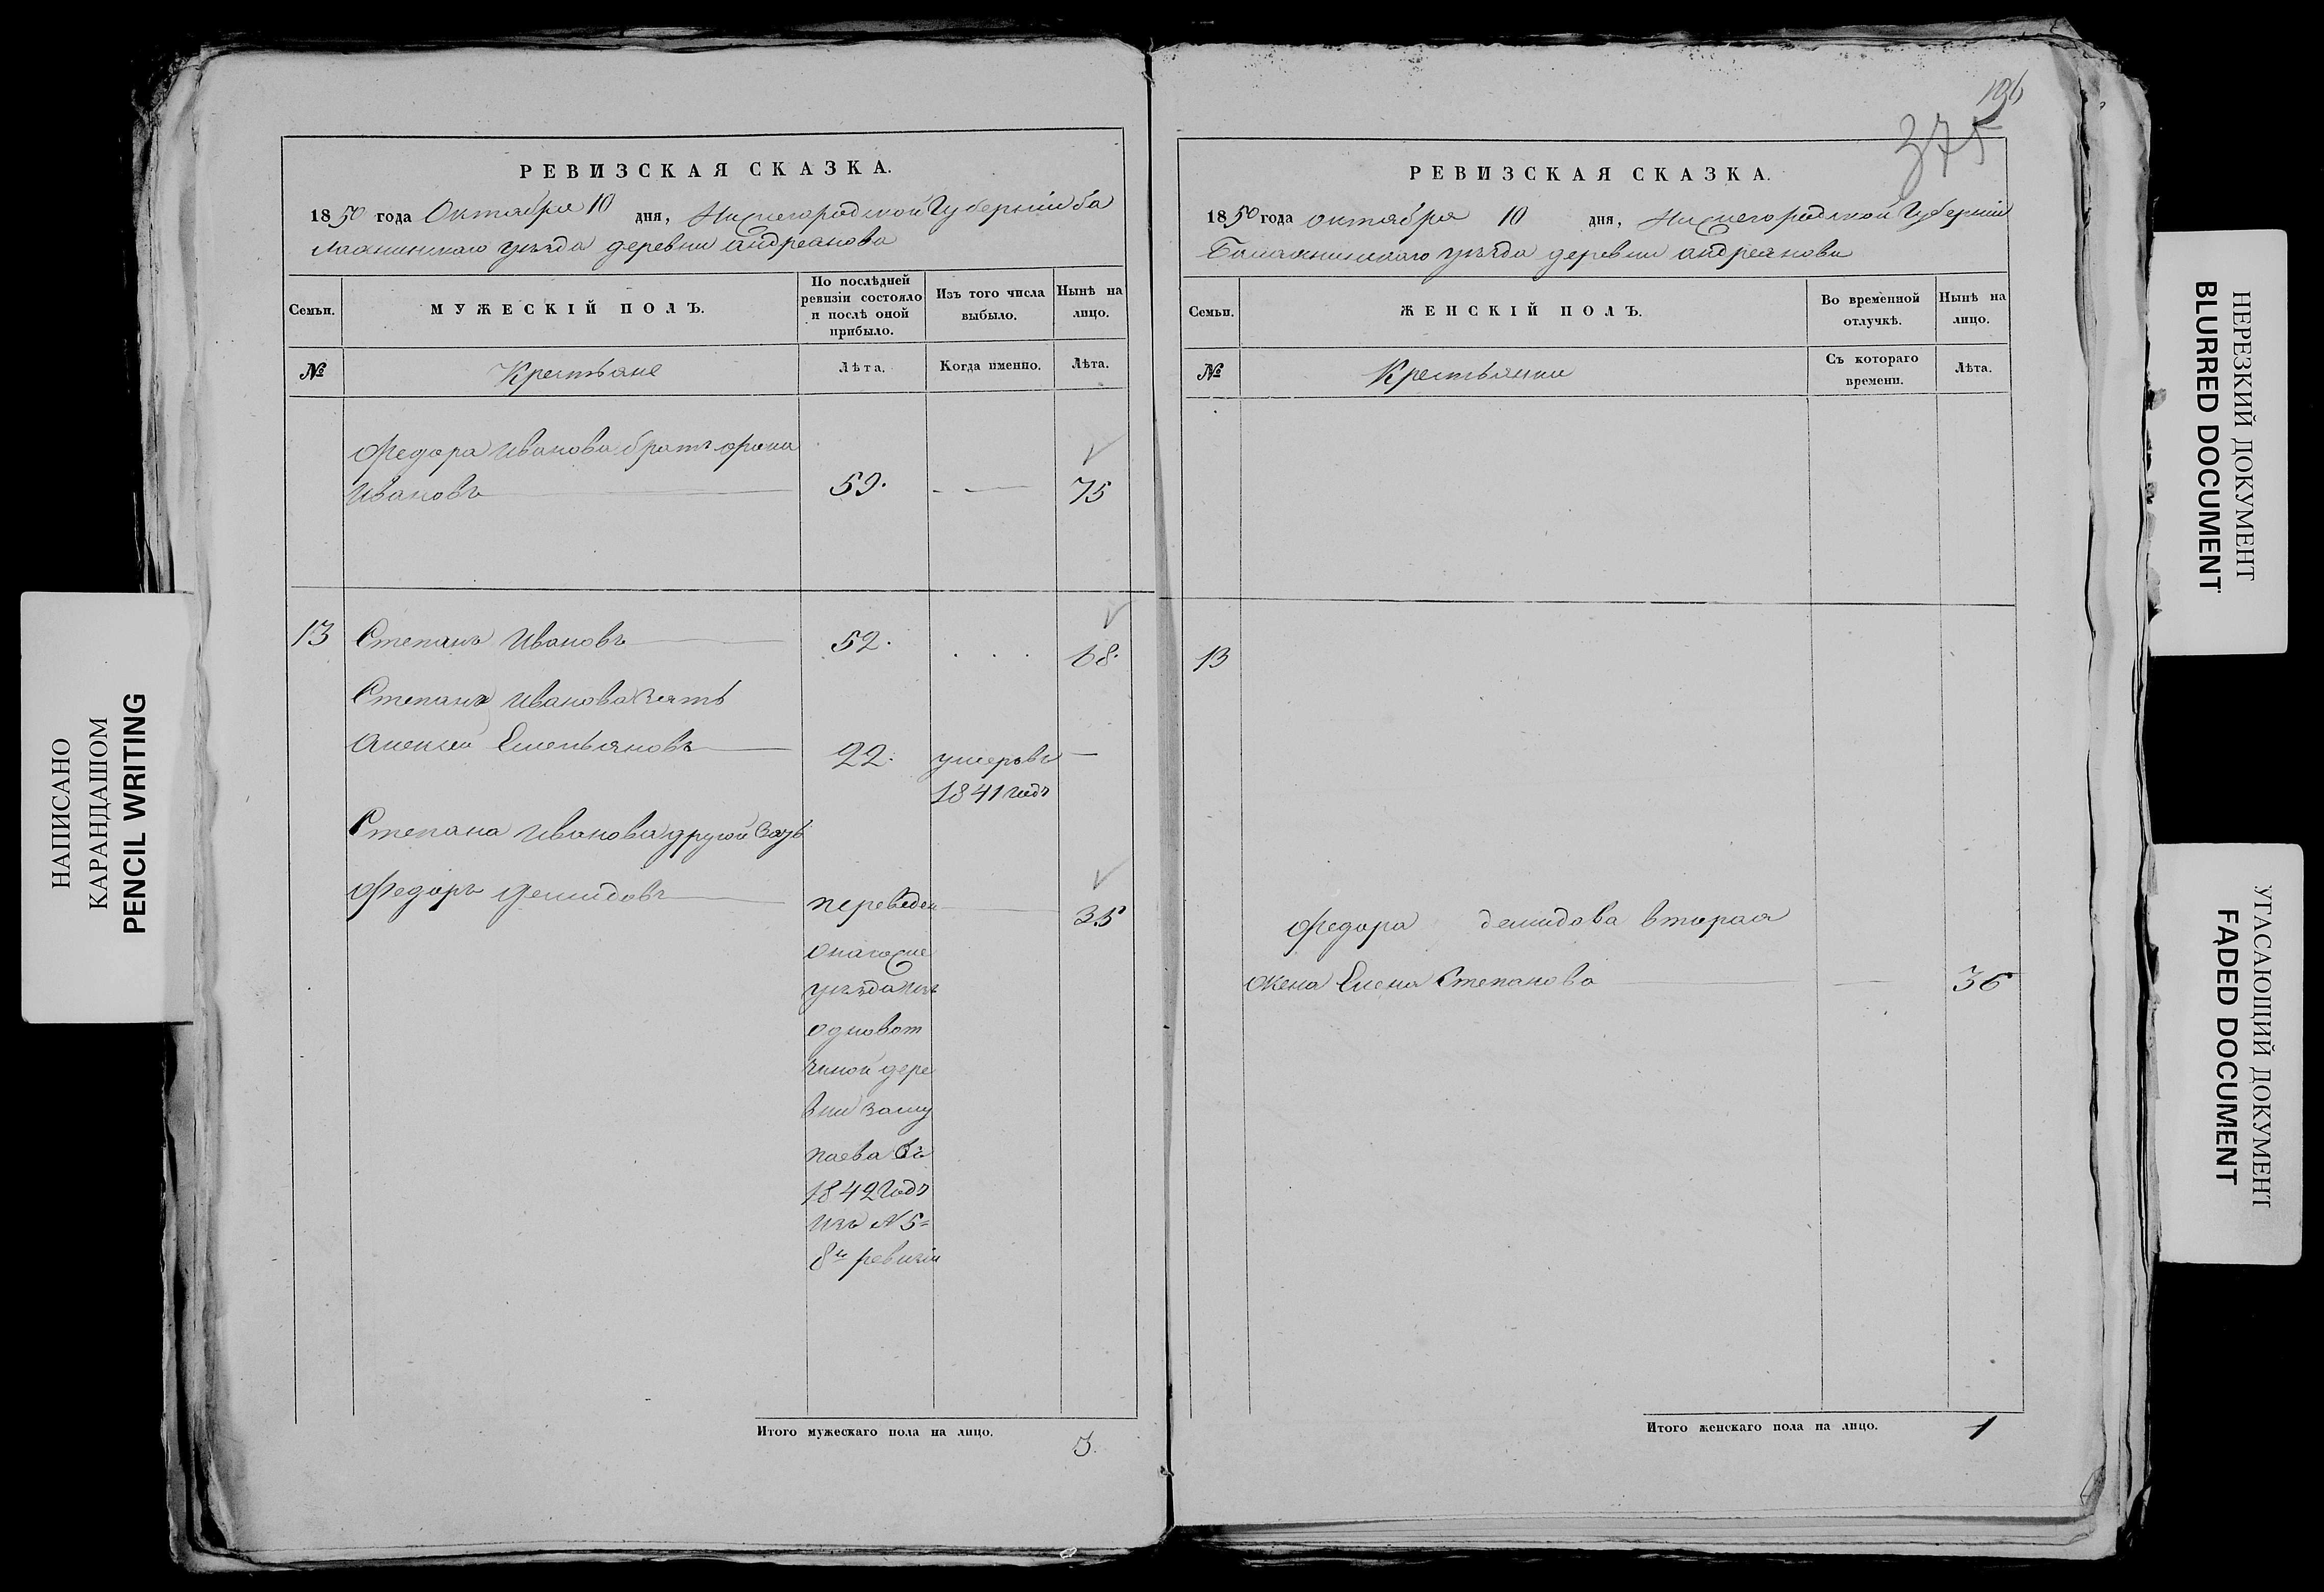 РЕВИЗСКАЯ СКАЗКА.
1850 года Октября 10 дня, Нижегородской Губерніи ба
лахнинскаго уѣзда деревни андреанова
Семьи.
МУЖЕСКІЙ ПОЛЪ.
По послѣдней ревизіи состояло и послѣ оной прибыло.
Изъ того числа выбыло.
Нынѣ на лицо.
№
Крестьяне
Лѣта.
Когда именно.
Лѣта.
Федора Иванова братъ фома
Ивановъ 59. 75
13 Степанъ Ивановъ 52. 68.
Степана Иванова зять
алексей Емельяновъ 22. умеръ въ
1841 годъ
Степана Иванова другой зять
Федоръ Демидовъ переведен 35
онагоже
уѣзда изъ
одновот
чиной дере
вни
въ
1842 годъ
изъ N 5
8й ревизіи
Итого мужескаго пола на лицо.
3.
196
375
РЕВИЗСКАЯ СКАЗКА.
1850 года октября 10 дня, Нижегородской Губерніи
Балахнинскаго уѣзда деревни андреянова
Семьи.
ЖЕНСКІЙ ПОЛЪ.
Во временной отлучкѣ.
Нынѣ на лицо.
№
Крестьянки
Съ котораго времени.
Лѣта.
13
Федора демидова вторая
жена Елена Степанова 36
Итого женскаго пола на лицо.
1
НАПИСАНО
КАРАНДАШОМ
PENCIL WRITING
НЕРЕЗКИЙ ДОКУМЕНТ
BLURRED DOCUMENT
УГАСАЮЩИЙ ДОКУМЕНТ
FADED DOCUMENT